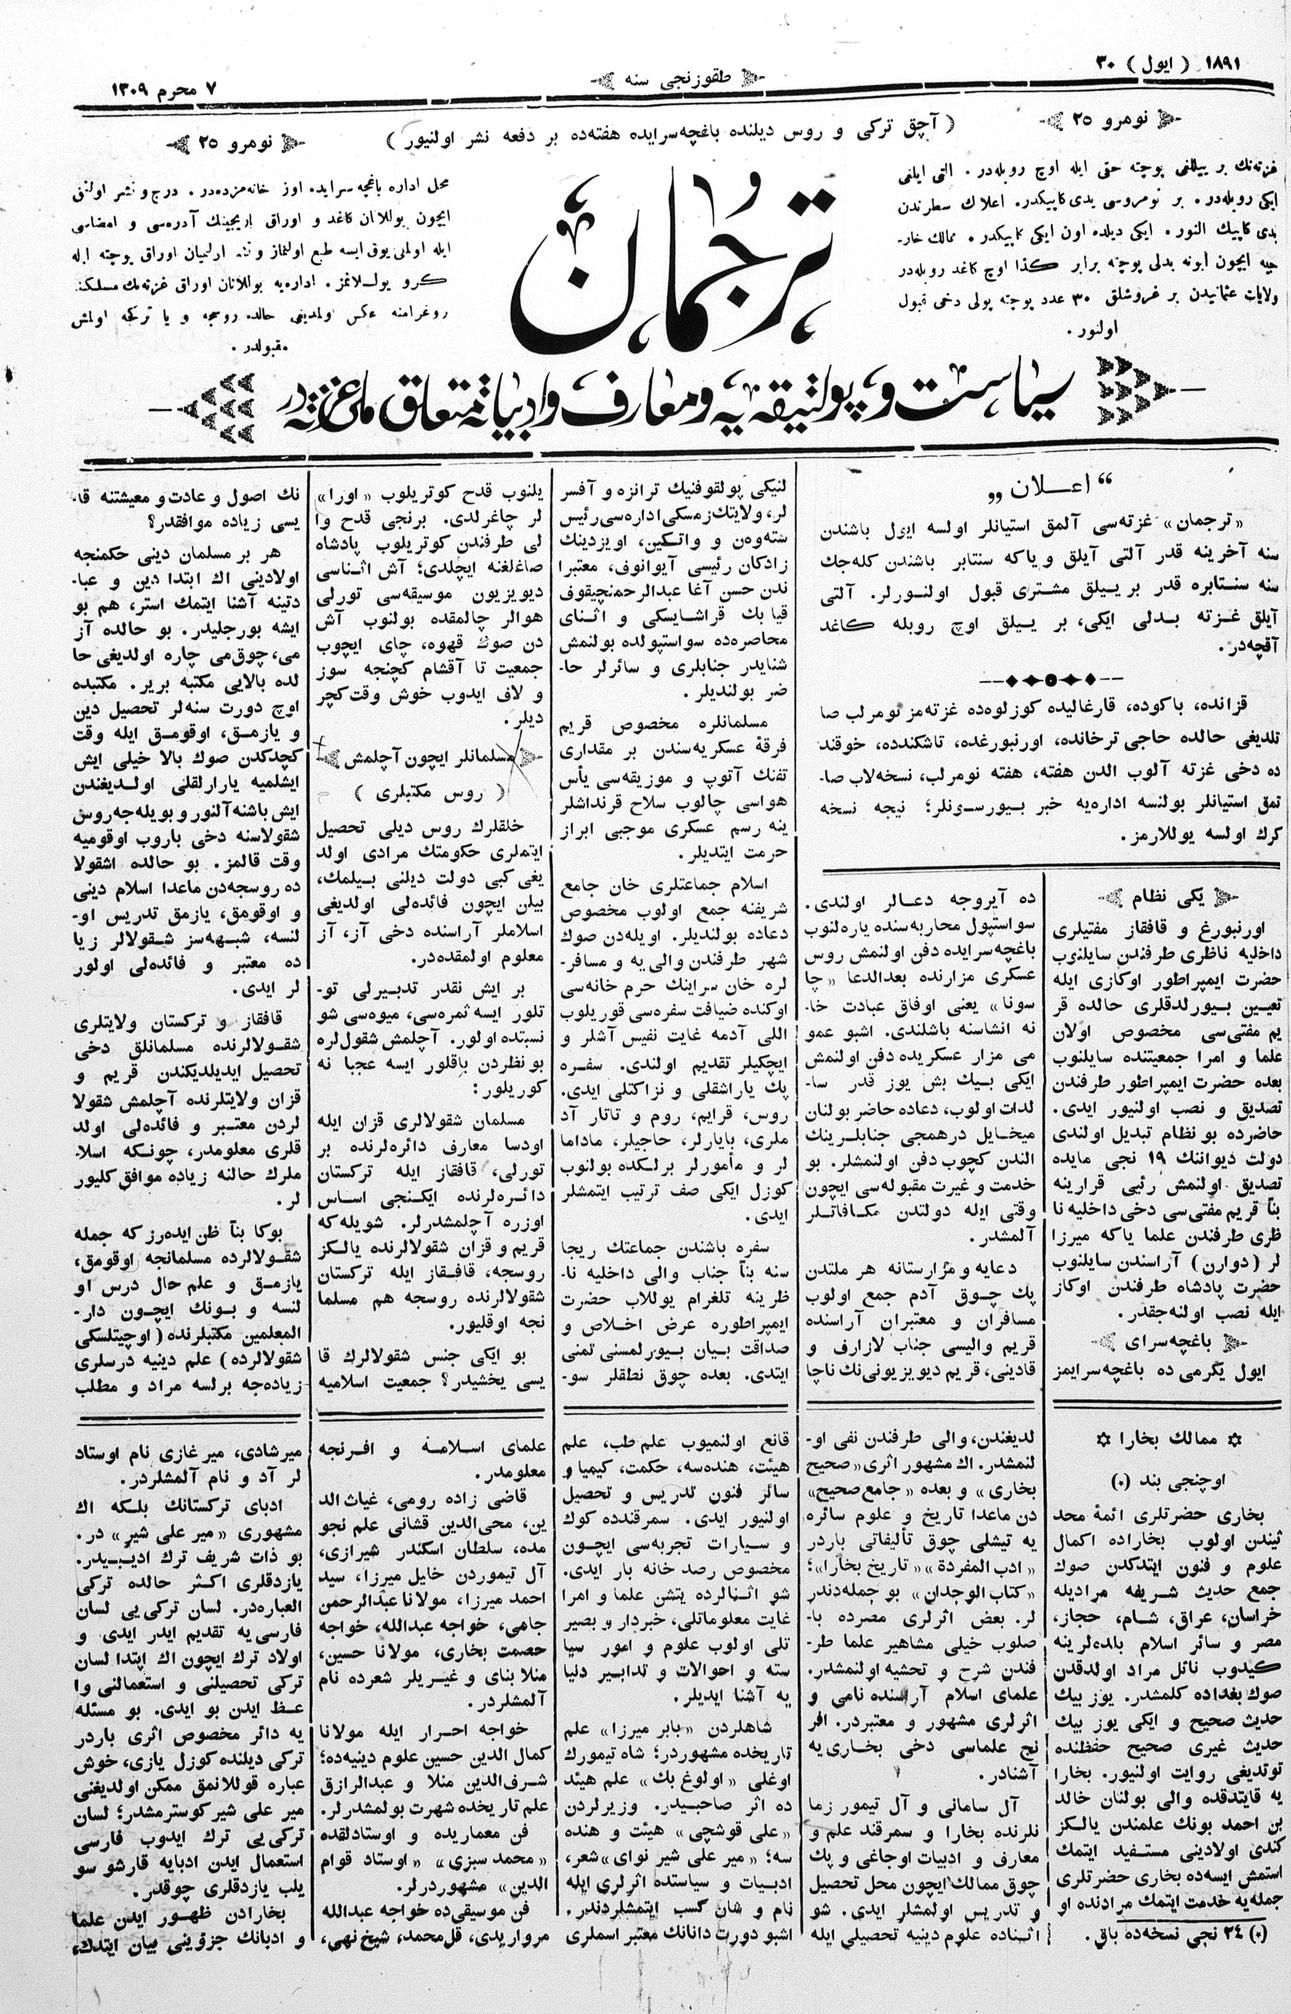 ١٨٩١ ( ايول ) ٣٠
طقوزنجى سنه
٧ محرم ١٣٠٩
نومرو ٢٥
( آچق تركى و روس ديلنده باغچه‌سرايده هفته‌ده بر دفعه نشر اولنيور )
نومرو ٢٥
غزته‌نك بر ييللغى پوچته حقى ايله اوچ روبله‌در. التى ايلغى
ايكى روبله‌در. بر نومروسى يدى كاپيكدر. اعلانك سطرندن
يدى كاپيك النور. ايكى ديلده اون ايكى كاپيكدر. ممالك خار-
جيه ايچون ابونه بدلى پوچته برابر كذا اوچ كاغد روبله‌در
ولايات عثمانيدن بر غروشلق ٣٠ عدد پوچته پولى دخى قبول
اولنور.
ترجمان
محل اداره باغچه سرايده. اوز خانه‌مزده‌در. درج و نشر اولنق
ايچون يوللانان كاغد و اوراق ايريجينك آدره‌سى و امضاسى
ايله اولملى يوق ايسه طبع اولنماز و نشر اولنميان اوراق پوچته ايله
كرو يوللانمز. اداره‌يه يوللانان اوراق غزته‌نك مسلكنه
روغرامنه عكس اولمديغى حالده روسجه و يا تركجه اولمش
مقبولدر.
سياست و پولتيقه‌يه و معارف و ادبياته متعلق ملى غزته‌در
“ اعــلان „
«ترجمان» غزته‌سى آلمق استيانلر اولسه ايول باشندن
سنه آخرينه قدر آلتى آيلق و ياكه سنتابر باشندن كله‌جك
سنه سنتابره قدر بر ييلق مشترى قبول اولنورلر. آلتى
آيلق غزته بدلى ايكى، بر ييلق اوچ روبله كاغد
آقچه‌در.
قزانده، باكوده، قارغاليده كوزلوه‌ده غزته‌مز نومرلب صا
تلديغى حالده حاجى ترخانده، اورنبورغده، تاشكنده، خوقند
ده دخى غزته آلوب الدن هفته، هفته نومرلب، نسخه‌لاب صا-
تمق استيانلر بولنسه اداره‌يه خبر بيورسونلر؛ نيجه نسخه
كرك اولسه يوللارمز.
يكى نظام
اورنبورغ و قافقاز مفتيلرى
داخليه ناظرى طرفندن سايلنوب
حضرت ايمپراطور اوكازى ايله
تعيين بيورلدقلرى حالده قر
يم مفتى‌سى مخصوص اولان
علما و امرا جمعيتنده سايلنوب
بعده حضرت ايمپراطور طرفندن
تصديق و نصب اولنيور ايدى.
حاضرده بو نظام تبديل اولندى
دولت ديواننك ١٩ نجى مايده
تصديق اولنمش رئيى قرارينه
بناً قريم مفتى‌سى دخى داخليه نا
ظرى طرفندن علما ياكه ميرزا
لر (دوارن) آراسندن سايلنوب
حضرت پادشاه طرفندن اوكاز
ايله نصب اولنه‌جقدر.
باغچه‌سراى
ايول يگرمى ده باغچه‌سرايمز
ده آيروجه دعالر اولندى.
سواستپول محاربه‌سنده ياره‌لنوب
باغچه‌سرايده دفن اولنمش روس
عسكرى مزارنده بعدالدعا «چا
سونا» يعنى اوفاق عبادت خا-
نه انشاسنه باشلندى. اشبو عمو
مى مزار عسكريده دفن اولنمش
ايكى بيك بش يوز قدر سا-
لدات اولوب، دعاده حاضر بولنان
ميخايل درهمجى جنابلرينك
الندن كچوب دفن اولنمشلر. بو
خدمت و غيرت مقبوله‌سى ايچون
وقتى ايله دولتدن مكافاتلر
آلمشدر.
دعايه و مزارستانه هر ملتدن
پك چوق آدم جمع اولوب
مسافران و معتبران آراسنده
قريم واليسى جناب لازارف و
قادينى، قريم ديويزيونى‌نك ناچا
لنيكى پولقوفنيك ترانزه و آفسر
لر، ولايتك زمسكى اداره‌سى رئيس
سته‌وه‌ن و واتكين، اويزدينك
زادكان رئيسى آيوانوف، معتبرا
ندن حسن آغا عبدالرحمنچيقوف
قيا بك قراشايسكى و اثناى
محاصره‌ده سواستپولده بولنمش
شنايدر جنابلرى و سائرلر حا-
ضر بولنديلر.
مسلمانلره مخصوص قريم
فرقهٔ عسكريه‌سندن بر مقدارى
تفنك آتوپ و موزيقه‌سى يأس
هواسى چالوب سلاح قرنداشلر
ينه رسم عسكرى موجبى ابراز
حرمت ايتديلر.
اسلام جماعتلرى خان جامع
شريفنه جمع اولوب مخصوص
دعاده بولنديلر. اويله‌دن صوك
شهر طرفندن والى‌يه و مسافر-
لره خان سراينك حرم خانه‌سى
اوكنده ضيافت سفره‌سى قوريلوب
اللى آدمه غايت نفيس آشلر و
ايچكيلر تقديم اولندى. سفره
پك ياراشقلى و نزاكتلى ايدى.
روس، قرايم، روم و تاتار آد
ملرى، بايارلر، حاجيلر، ماداما
لر و مأمورلر برلكده بولنوب
كوزل ايكى صف ترتيب ايتمشلر
ايدى.
سفره باشندن جماعتك ريجا
سنه بناً جناب والى داخليه نا-
ظرينه تلغرام يوللاب حضرت
ايمپراطوره عرض اخلاص و
صداقت بيان بيورلمسنى تمنى
ايتدى. بعده چوق نطقلر سو-
يلنوب قدح كوتريلوب «اورا»
لر چاغرلدى. برنجى قدح وا
لى طرفندن كوتريلوب پادشاه
صاغلغنه ايچلدى؛ آش اثناسى
ديويزيون موسيقه‌سى تورلى
هوالر چالمقده بولنوب آش
دن صوك قهوه، چاى ايچوب
جمعيت تا آقشام كچنجه سوز
و لاف ايدوب خوش وقت كچر
ديلر.
مسلمانلر ايچون آچلمش
( روس مكتبلرى )
خلقلرك روس ديلى تحصيل
ايتملرى حكومتك مرادى اولد
يغى كبى دولت ديلنى بيلمك،
بيلن ايچون فائده‌لى اولديغى
اسلاملر آراسنده دخى آز، آز
معلوم اولمقده‌در.
بر ايش نقدر تدبيرلى تو-
تلور ايسه ثمره‌سى، ميوه‌سى شو
نسبتده اولور. آچلمش شقوللره
بو نظردن باقلور ايسه عجبا نه
كوريلور:
مسلمان شقولالرى قزان ايله
اودسا معارف دائره‌لرنده بر
تورلى، قافقاز ايله تركستان
دائره‌لرنده ايكنجى اساس
اوزره آچلمشدرلر. شويله‌كه
قريم و قزان شقولالرنده يالكز
روسجه، قافقاز ايله تركستان
شقولالرنده روسجه هم مسلما
نجه اوقليور.
بو ايكى جنس شقولالرك قا
يسى يخشيدر؟ جمعيت اسلاميه
نك اصول و عادت و معيشتنه قا-
يسى زياده موافقدر؟
هر بر مسلمان دينى حكمنجه
اولادينى اك ابتدا دين و عبا-
دتينه آشنا ايتمك استر، هم بو
ايشه بورجليدر. بو حالده آز
مى، چوق‌مى چاره اولديغى حا
لده بالايى مكتبه بريور. مكتبده
اوچ دورت سنه‌لر تحصيل دين
و يازمق، اوقومق ايله وقت
كچدكدن صوك بالا خيلى ايش
ايشلميه يارارلقلى اولديغندن
ايش باشنه آلنور و بويله‌جه روس
شقولاسنه دخى باروب اوقوميه
وقت قالمز. بو حالده اشقولا
ده روسجه‌دن ماعدا اسلام دينى
و اوقومق، يازمق تدريس او-
لنسه، شبهه‌سز شقولالر زيا
ده معتبر و فائده‌لى اولور
لر ايدى.
قافقاز و تركستان ولايتلرى
شقولالرنده مسلمانلق دخى
تحصيل ايديلديكندن قريم و
قزان ولايتلرنده آچلمش شقولا
لردن معتبر و فائده‌لى اولد
قلرى معلومدر، چونكه اسلا-
ملرك حالنه زياده موافق كليور
لر.
بوكا بناً ظن ايده‌رز كه جمله
شقولالرده مسلمانجه اوقومق،
يازمق و علم حال درس او
لنسه و بونك ايچون دار-
المعلمين مكتبلرنده (اوچيتلسكى
شقولالرده) علم دينيه درسلرى
زياده‌جه برلسه مراد و مطلب
ممالك بخارا
اوچنجى بند (٠)
بخارى حضرتلرى ائمهٔ محد
ثيندن اولوب بخاراده اكمال
علوم و فنون ايتدكدن صوك
جمع حديث شريفه مراديله
خراسان، عراق، شام، حجاز،
مصر و سائر اسلام بلده‌لرينه
كيدوب نائل مراد اولدقدن
صوك بغداده كلمشدر. يوز بيك
حديث صحيح و ايكى يوز بيك
حديث غيرى صحيح حفظنده
توتديغى روايت اولنيور. بخارا
يه قايتدقده والى بولنان خالد
بن احمد بونك علمندن يالكز
كندى اولادينى مستفيد ايتمك
استمش ايسه‌ده بخارى حضرتلرى
جمله‌يه خدمت ايتمك مرادنده او
(٠) ٢٤ نجى نسخه‌ده باق.
لديغندن، والى طرفندن نفى او-
لنمشدر. اك مشهور اثرى «صحيح
بخارى» و بعده «جامع صحيح»
دن ماعدا تاريخ و علوم سائره
يه تيشلى چوق تأليفاتى باردر
«ادب المفردة» «تاريخ بخارا»؛
«كتاب الوجدان» بو جمله‌دندر
لر. بعض اثرلرى مصرده با-
صلوب خيلى مشاهير علما طر-
فندن شرح و تحشيه اولنمشدر.
علماى اسلام آراسنده نامى و
اثرلرى مشهور و معتبردر. افر
نج علماسى دخى بخارى‌يه
آشنادر.
آل سامانى و آل تيمور زما
نلرنده بخارا و سمرقند علم و
معارف و ادبيات اوجاغى و پك
چوق ممالك ايچون محل تحصيل
و تدريس اولمشلر ايدى. شو
اثناده علوم دينيه تحصيلى ايله
قانع اولنميوب علم طب، علم
هيئت، هنده‌سه، حكمت، كيميا و
سائر فنون تدريس و تحصيل
اولنيور ايدى. سمرقنده كوك
و سيارات تجربه‌سى ايچون
مخصوص رصد خانه بار ايدى.
شو اثنالرده يتشن علما و امرا
غايت معلوماتلى، خبردار و بصير
تلى اولوب علوم و امور سيا
سته و احوالات و تدابير دنيا
يه آشنا ايديلر.
شاهلردن «بابر ميرزا» علم
تاريخده مشهوردر؛ شاه تيمورك
اوغلى «اولوغ بك» علم هيئد
ده اثر صاحبيدر. وزيرلردن
«على قوشچى» هيئت و هنده
سه؛ «مير على شير نواى» شعر،
ادبيات و سياستده اثرلرى ايله
نام و شان كسب ايتمشلردندر.
اشبو دورت دانانك معتبر اسملرى
علماى اسلامه و افرنجه
معلومدر.
قاضى زاده رومى، غياث الد
ين، محى‌الدين قشانى علم نجو
مده، سلطان اسكندر شيرازى،
آل تيموردن خايل ميرزا، سيد
احمد ميرزا، مولانا عبدالرحمن
جامى، خواجه عبدالله، خواجه
حصمت بخارى، مولانا حسين،
منلا بناى و غيريلر شعرده نام
آلمشلردر.
خواجه احرار ايله مولانا
كمال الدين حسين علوم دينيه‌ده؛
شرف‌الدين منلا و عبدالرازق
علم تاريخده شهرت بولمشدرلر.
فن معماريده و اوستادلقده
«محمد سبزى» «اوستاد قوام
الدين» مشهوردرلر.
فن موسيقى‌ده خواجه عبدالله
مرواريدى، قل‌محمد، شيخ نهى،
ميرشادى، مير غازى نام اوستاد
لر آد و نام آلمشلردر.
ادباى تركستانك بلكه اك
مشهورى «مير على شير» در.
بو ذات شريف ترك اديبيدر.
يازدقلرى اكثر حالده تركى
العباره‌در. لسان تركى‌يى لسان
فارسى‌يه تقديم ايدر ايدى و
اولاد ترك ايچون اك ابتدا لسان
تركى تحصيلنى و استعمالنى وا
عظ ايدن بو ايدى. بو مسئله
يه دائر مخصوص اثرى باردر
تركى ديلنده كوزل يازى، خوش
عباره قوللانمق ممكن اولديغنى
مير على شير كوسترمشدر؛ لسان
تركى‌يى ترك ايدوب فارسى
استعمال ايدن ادبايه قارشو سو
يلب يازدقلرى چوقدر.
بخارادن ظهور ايدن علما
و ادبانك جزؤينى بيان ايتدك،